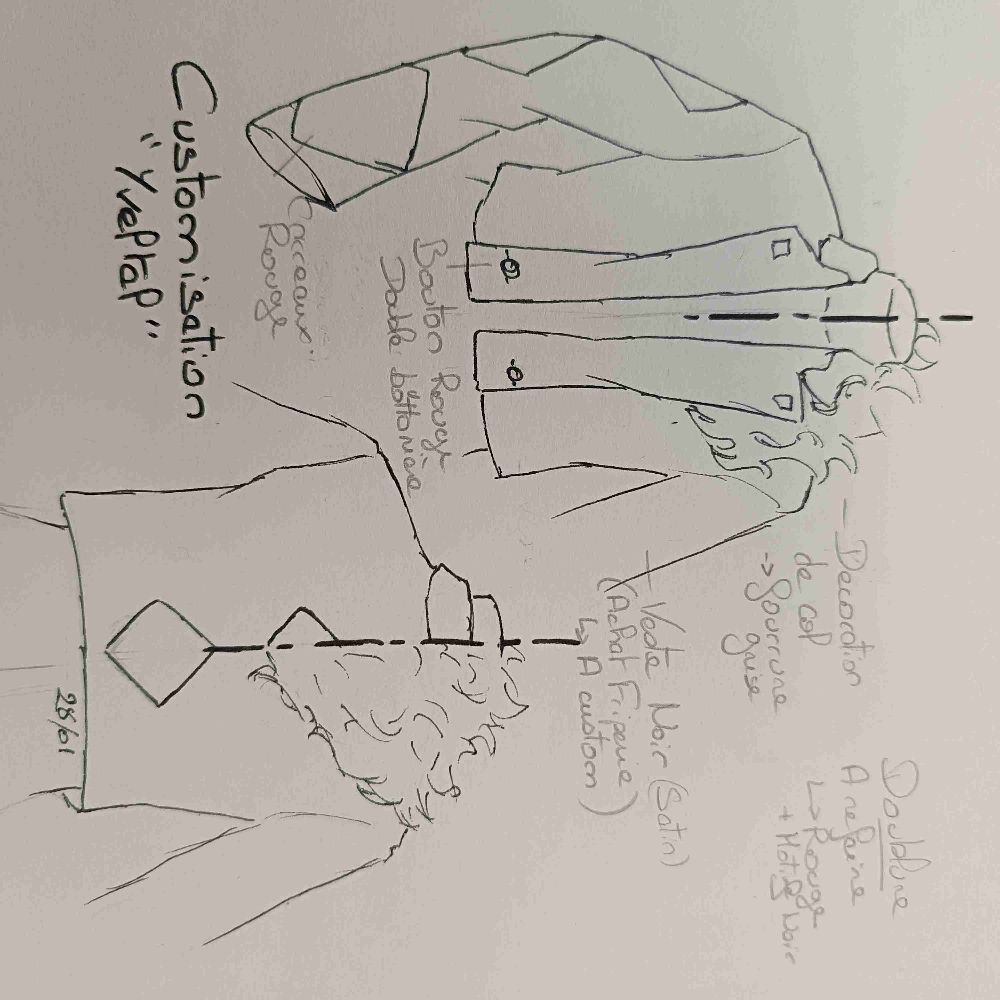 - Decoration
de col
-> Fourrure
grise
Doublure
A refaire
↳ Rouge
+ Motif Noir
- Veste Noir (Satin)
(Achat Friperie)
↳ A custom
Bouton Rouge
Double "bottonière"
Carreaux
Rouge
Customisation
"Yveptap"
28/01